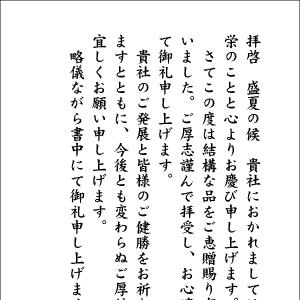 拝啓　盛夏の候　貴社におかれまして
栄のことと心よりお慶び申し上げます。
　さてこの度は結構な品をご恵贈賜り
いました。ご厚志謹んで拝受し、お心
て御礼申し上げます。
　貴社のご発展と皆様のご健勝をお祈り
ますとともに、今後とも変わらぬご厚
宜しくお願い申し上げます。
　略儀ながら書中にて御礼申し上げます